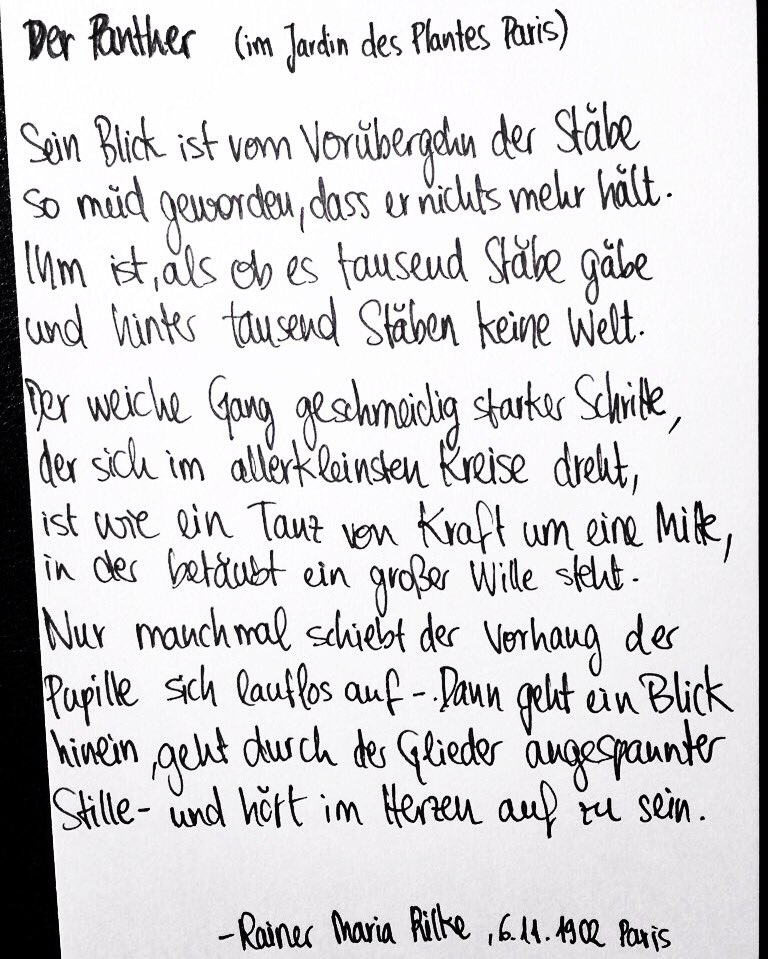 Der Panther (im Jardin des Plantes Paris)
Sein Blick ist vom Vorübergehn der Stäbe
so müd geworden, dass er nichts mehr hält.
Ihm ist, als ob es tausend Stäbe gäbe
und hinter tausend Stäben keine Welt.
Der weiche Gang geschmeidig starker Schritte,
der sich im allerkleinsten Kreise dreht,
ist wie ein Tanz von Kraft um eine Mitte,
in der betäubt ein großer Wille steht.
Nur manchmal schiebt der Vorhang der
Pupille sich lautlos auf -. Dann geht ein Blick
hinein, geht durch der Glieder angespannter
Stille - und hört im Herzen auf zu sein.
- Rainer Maria Rilke, 6.11.1902 Paris